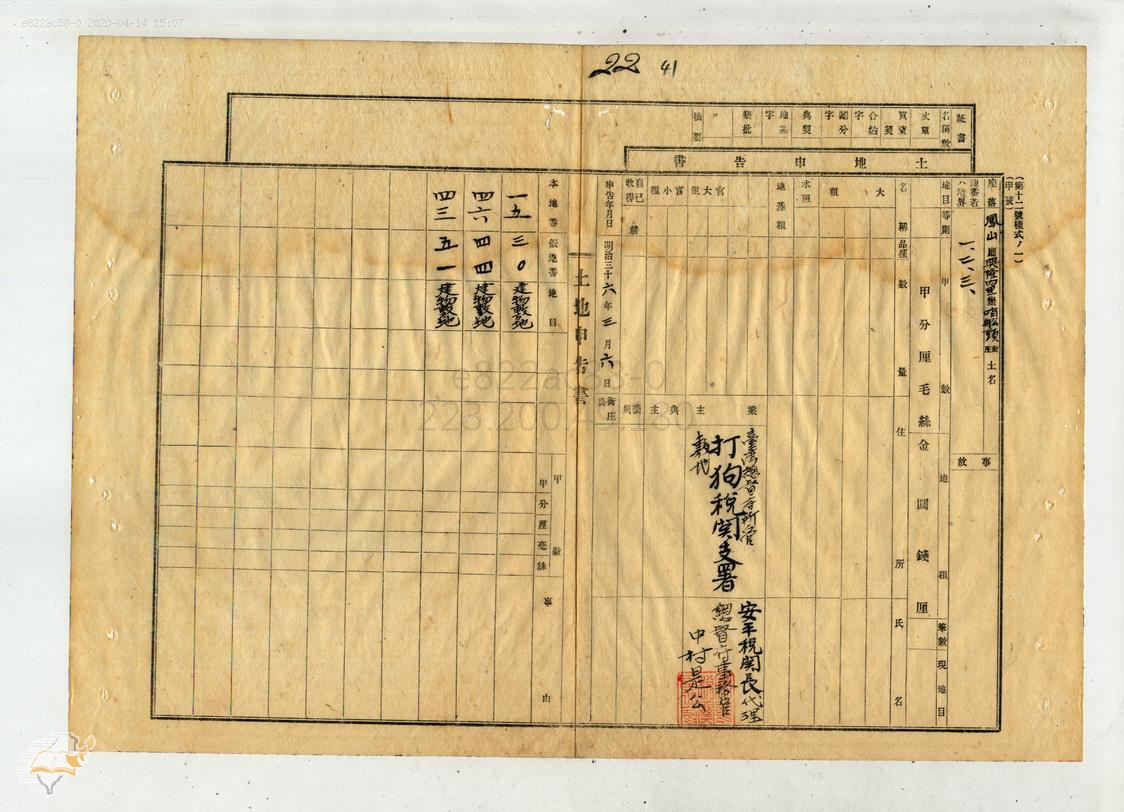 e822ac88-0 2020-04-14 15:07
22 41
(第十二號樣式ノ一)
(甲號)
証書
土地申告書
座落 鳳山廳興隆內里堡哨船頭街庄土名
一、二、三、
事故
地目等則
甲數
地租
筆數現地目
甲分厘毛絲金圓錢厘
名稱品種數量住所氏名
大租
水租
地基租
官大租官小租
自己收得
業主
典主
臺灣總督府所管
打狗稅関支署
敷地
安平稅関長代理
總督府事務官
中村是公
申告年月日 明治三十六年三月六日
土地申告書
本地番假地番地目
甲數
甲分厘毫絲
事由
一五 三〇 建物敷地
四六 四四 建物敷地
四三 五一 建物敷地
e822ac88-0